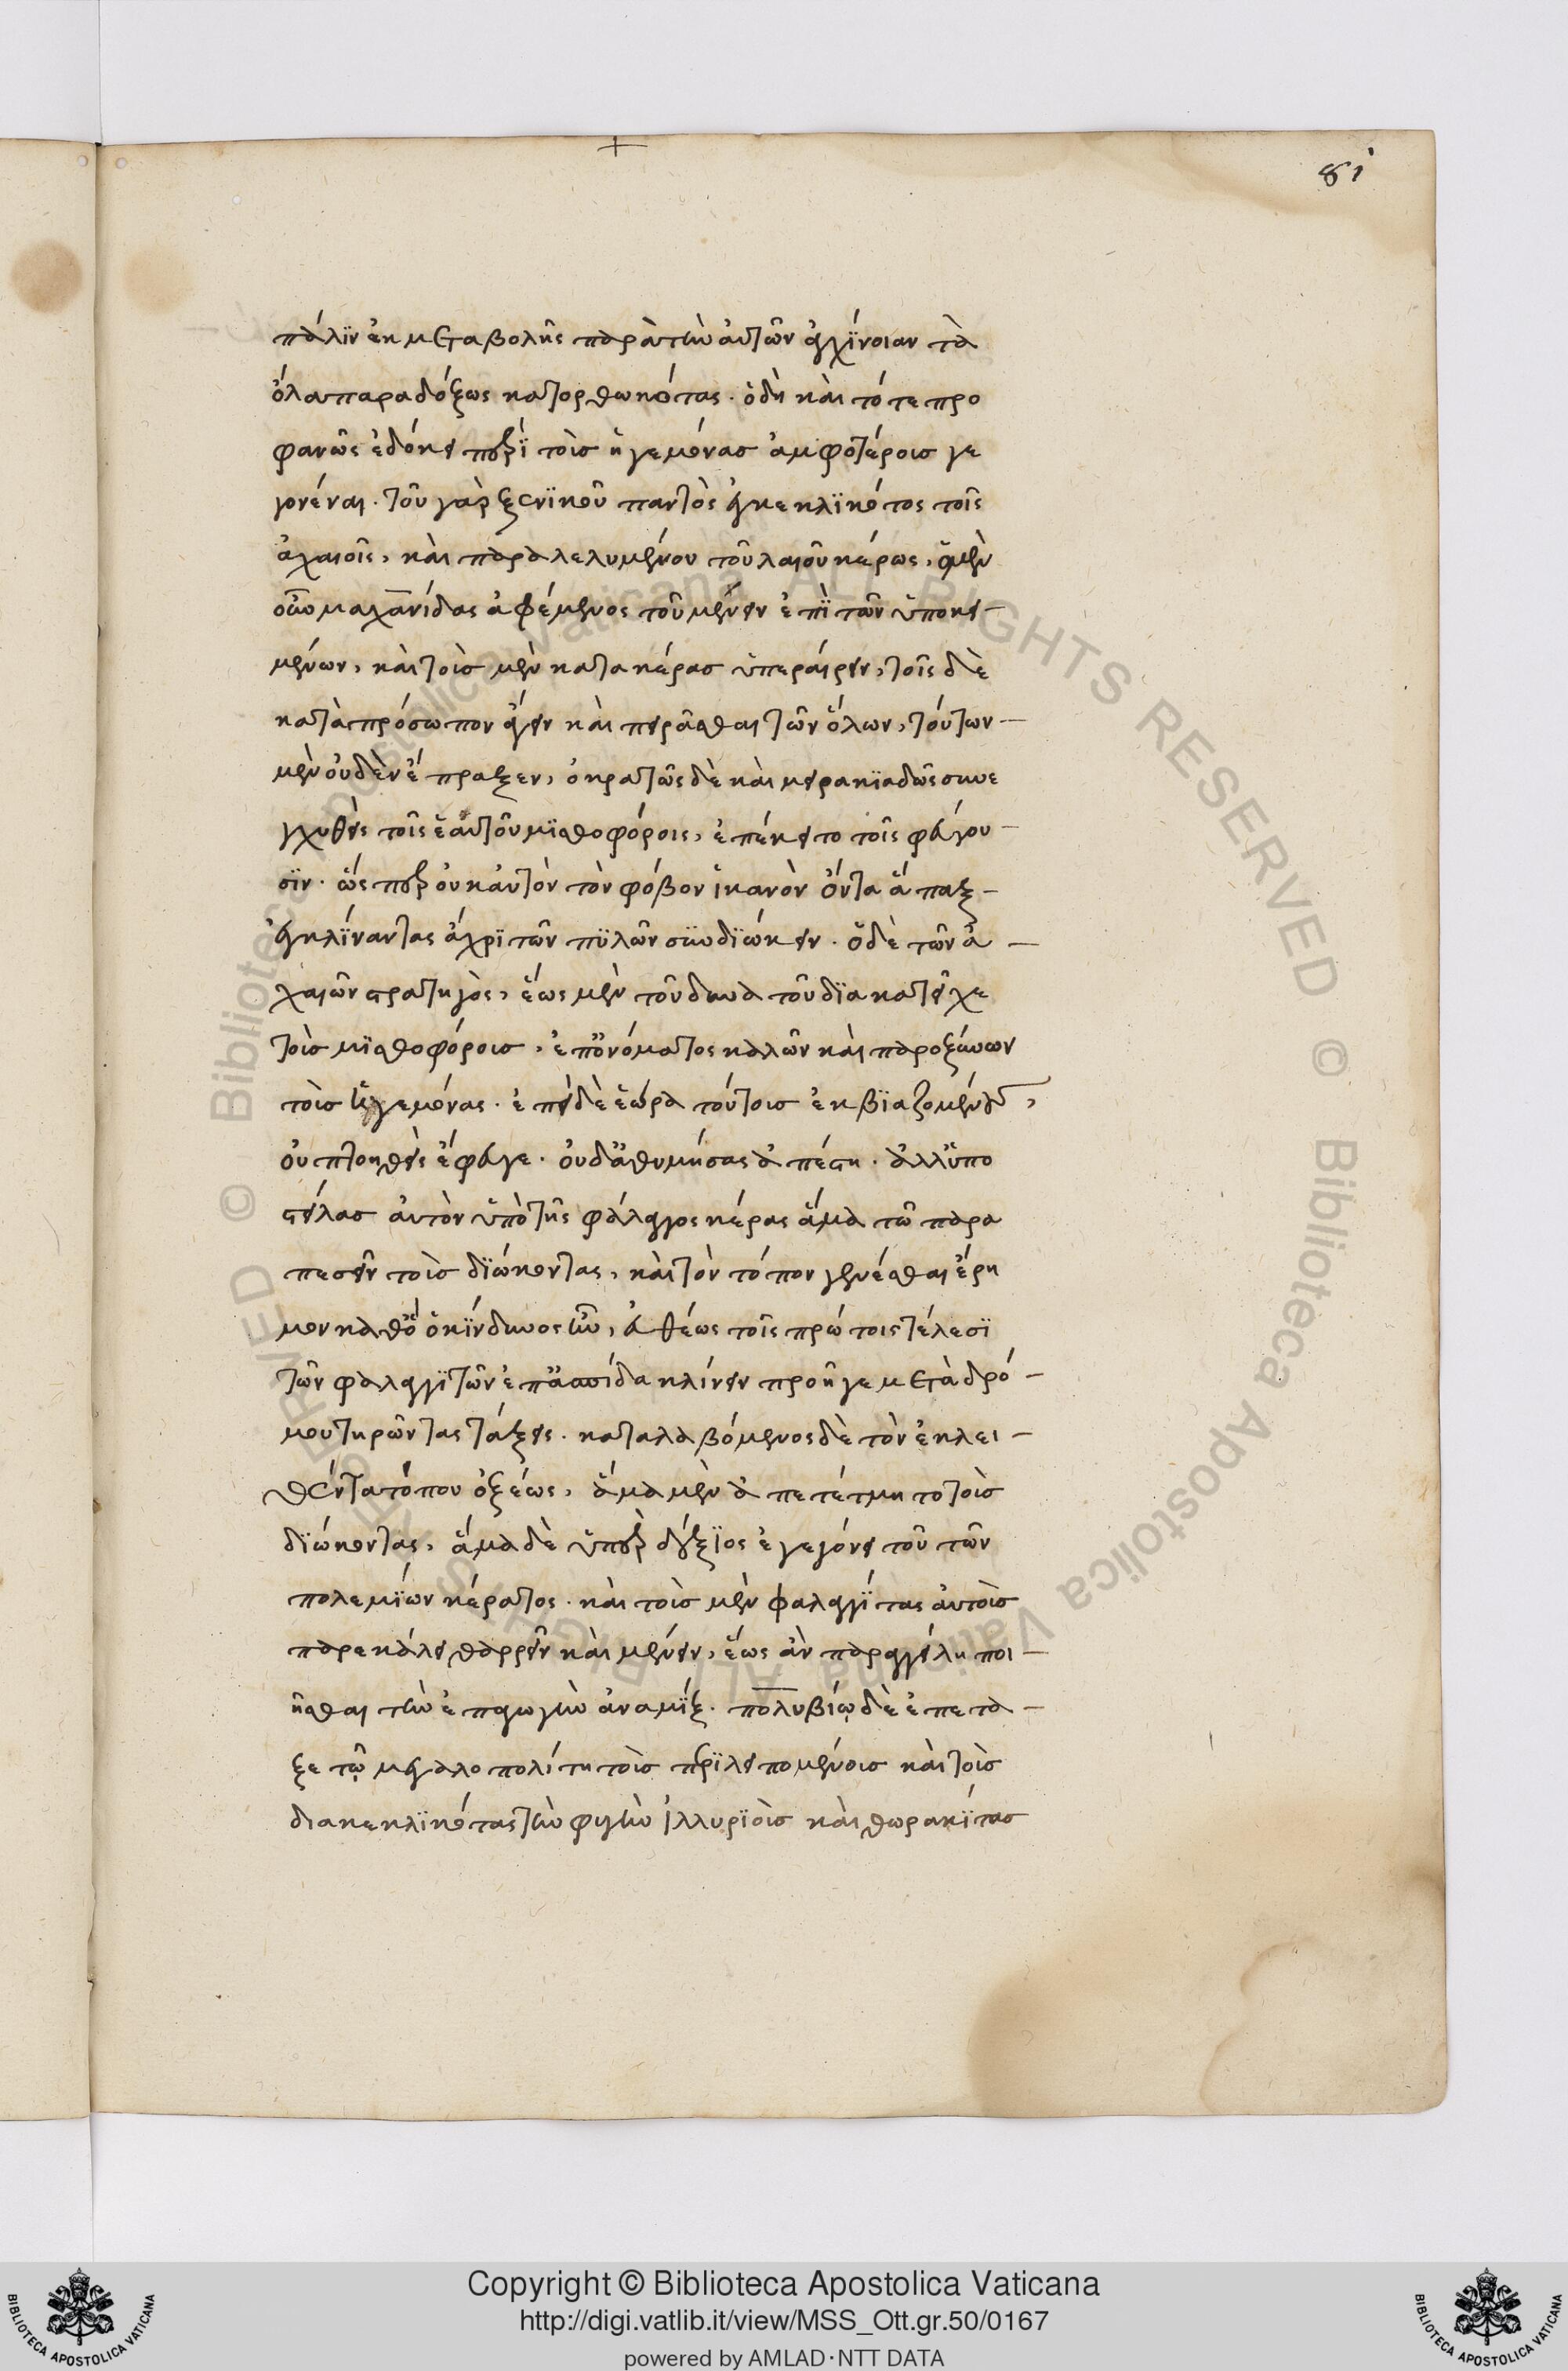 81
πάλιν ἐκ μεταβολῆς παρὰ τὴν αὐτῶν ἀγχίνοιαν τὰ
ὅλα παραδόξως κατορθωκότας. ὁ δὴ καὶ τότε προ
φανῶς ἐδόκει περὶ τοὺς ἡγεμόνας ἀμφοτέρους γε
γονέναι. τοῦ γὰρ ξενικοῦ παντὸς ἐκκεκλικότος τοῖς
ἀχαιοῖς, καὶ παραλελυμένου τοῦ λαιοῦ κέρως, ὁ μὲν
οὖν μαχανίδας ἀφέμενος τοῦ μένειν ἐπὶ τῶν ὑποκει
μένων, καὶ τοὺς μὲν κατα κέρας ὑπεραίρειν, τοῖς δὲ
κατὰ πρόσωπον ἄγειν καὶ πειρᾶσθαι τῶν ὅλων, τούτων
μὲν οὐδὲν ἔπραξεν, ἀκρατῶς δὲ καὶ μειρακιωδῶς συνε
χυθεὶς τοῖς ἑαυτοῦ μισθοφόροις, ἐπέκειτο τοῖς φεύγου
σιν. ὥς περ οὐκ αὐτὸν τὸν φόβον ἱκανὸν ὄντα ἅπαξ
ἐγκλίναντας ἄχρι τῶν πυλῶν συνδιώκειν. ὁ δὲ τῶν ἀ
χαιῶν στρατηγὸς, ἕως μὲν τοῦ δυνα τοῦ δια κατεῖχε
τοὺς μισθοφόρους, ἐπ' ὀνόματος καλῶν καὶ παροξύνων
τοὺς ἡγεμόνας. ἐπεὶ δὲ ἑώρα τούτους ἐκβιαζομένους,
οὐ πτοηθεὶς ἔφευγε. οὐδ' ἀθυμήσας ἀπέστη. ἀλλ' ὑπο
στείλας αὐτὸν ὑπὸ τῆς φάλαγγος κέρας ἅμα τῷ παρα
πεσεῖν τοὺς διώκοντας, καὶ τὸν τόπον γενέσθαι ἔρη
μον καθ' ὃ ὁ κίνδυνος ἦν, εὐθέως τοῖς πρώτοις τέλεσι
τῶν φαλαγγιτῶν ἐπ' ἀσπίδα κλίνειν προῆγε μετὰ δρό
μου τηρῶντας τάξεις. καταλαβόμενος δὲ τὸν ἐκλει
θέντα τόπον ὀξέως, ἅμα μὲν ἀπετέτμητο τοὺς
διώκοντας, ἅμα δὲ ὑπερδέξιος ἐγεγόνει τοῦ τῶν
πολεμίων κέρατος. καὶ τοὺς μὲν φαλαγγίτας αὐτοὺς
παρεκάλει θαρρεῖν καὶ μένειν, ἕως ἂν παραγγείλη ποι
ῆσθαι τὴν ἐπαγωγὴν ἀναμίξ. πολυβίῳ δὲ ἐπέτα
ξε τῷ μεγαλοπολίτη τοὺς περιλειπομένους καὶ τοὺς
διακεκλικότας τὴν φυγὴν ἰλλυριοὺς καὶ θωρακίτας
Copyright © Biblioteca Apostolica Vaticana
http://digi.vatlib.it/view/MSS_Ott.gr.50/0167
powered by AMLAD·NTT DATA